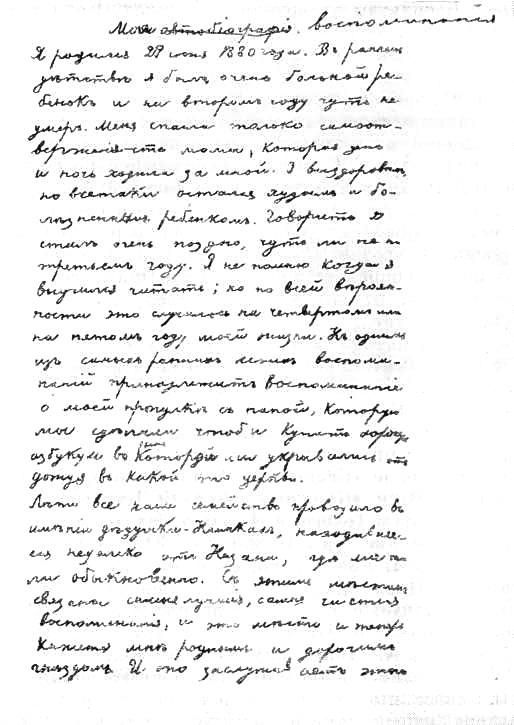 Моя автобіографія. воспоминанія
Я родился 29 іюня 1880 года. Въ раннемъ
дѣтствѣ я былъ очень больной ре-
бенокъ и на второмъ году чуть не
умеръ. Меня спасла только самоот-
верженность мамы, которая день
и ночь ходила за мной. Я выздоровѣлъ,
но всетаки остался худымъ и бо-
лѣзненнымъ ребенкомъ. Говорить я
сталъ очень поздно, чуть ли не на
третьемъ году. Я не помню когда я
выучился читать; но по всей вѣроят-
ности это случилось на четвертомъ или
на пятомъ году моей жизни. Къ однимъ
изъ самыхъ раннихъ моихъ воспоми-
наній принадлежитъ воспоминаніе
о моей прогулкѣ съ папой, которую
мы сдѣлали чтобы купить
азбуку и во время которой мы укрывались отъ
дождя въ какой то церкви.
Лѣто все наше семейство проводило въ
имѣніи дѣдушки находившее-
ся недалеко отъ Казани, гдѣ мы жи-
ли обыкновенно. Съ этими мѣстами
связаны самыя лучшія, самыя чистыя
воспоминанія, и это мѣсто и теперь
кажется мнѣ роднымъ и дорогимъ
гнѣздомъ. И оно заслуживаетъ этого